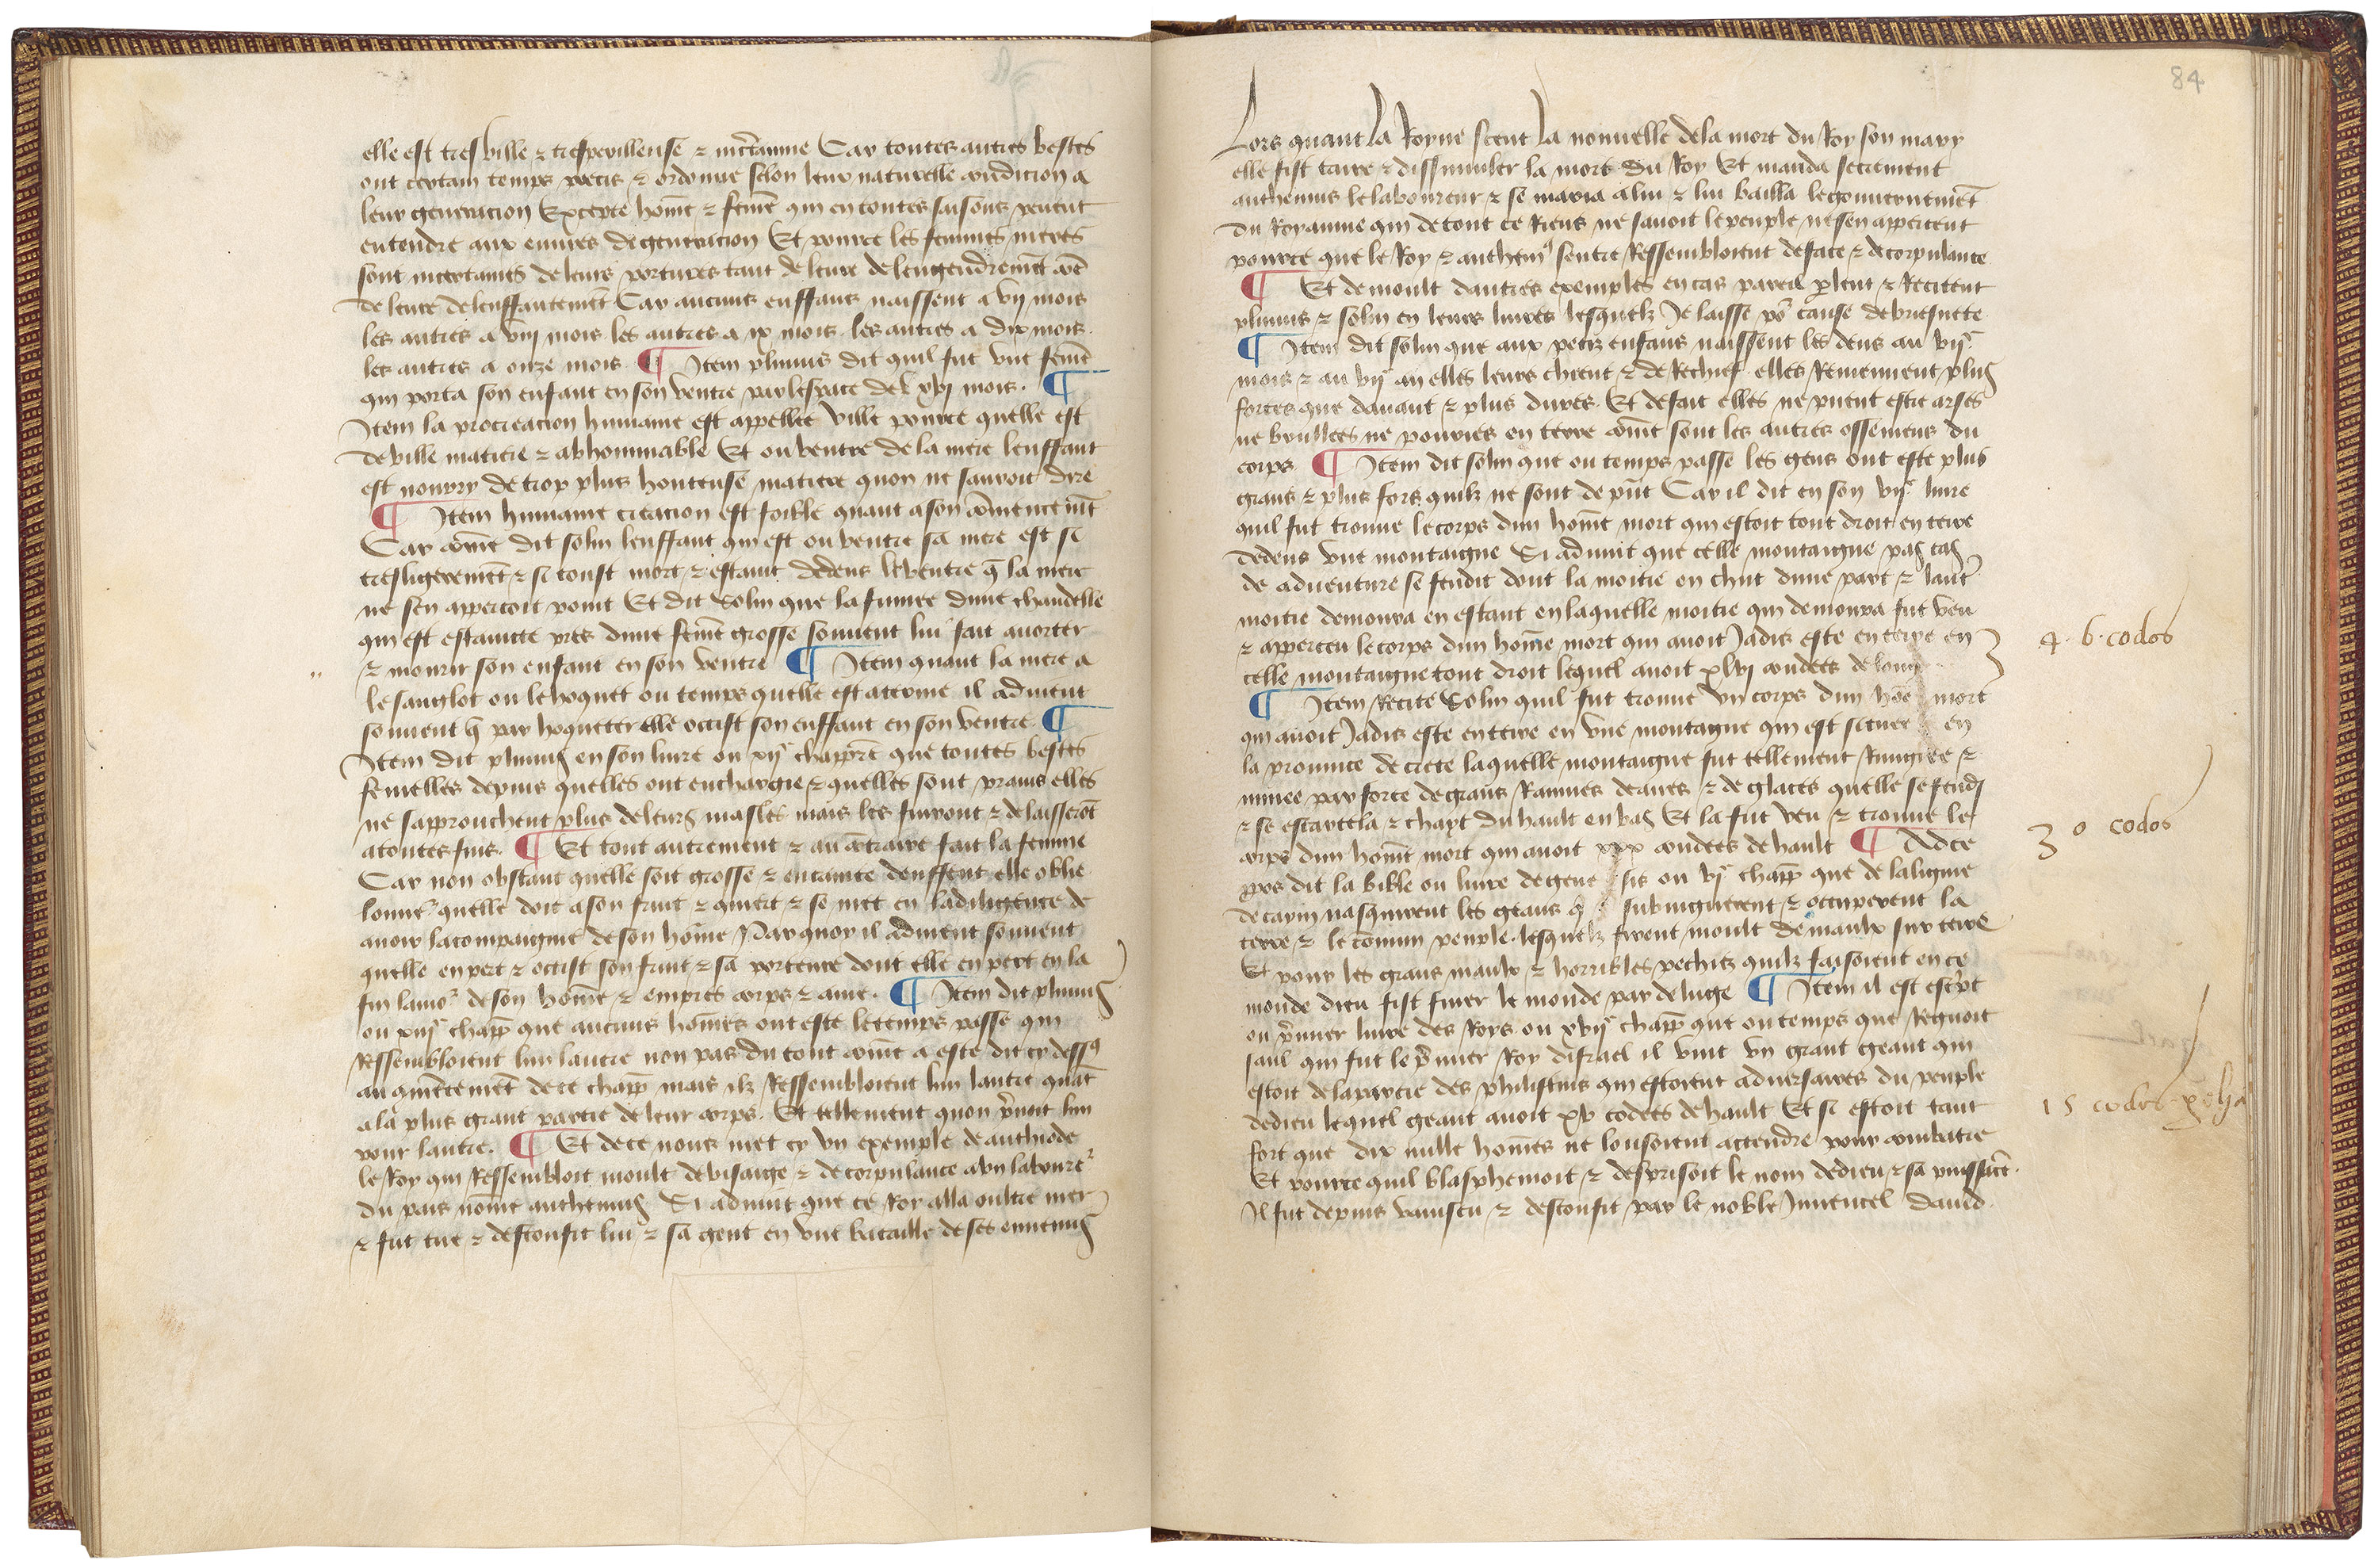 elle est tresville ⁊ tresperilleuse ⁊ inc̃taine Car toutes autres bestes
ont certain temps precis ⁊ ordonne selon leur naturelle condicion a
leur generacion Excepte hom̃e ⁊ fem̃e qui en toutes saisons peuent
entendre aux euures de generacion Et pource les femmes meres
sont incertaines de leurs portures tant de leure de lengendremẽt com̃e
de leure de lenffantemẽt Car aucuns enffans naissent a vij mois
les autres a viij mois les autres a ix mois les autres a dix mois.
les autres a onze mois. ¶ Item plinius dit quil fut vne fem̃e
qui porta son enfant en son ventre par lespace de xvj mois. ¶
Item la procreacion humaine est appellee ville pource quelle est
de ville matiere ⁊ abhominable Et ou ventre de la mere lenffant
est nourry de trop plus honteuse matiere quon ne sauroit dire
¶ Item humaine creacion est foible quant a son com̃encemẽt
Car com̃e dit solin lenffant qui est ou ventre sa mere est si
tresligeremẽt ⁊ si toust mort ⁊ estaint dedens le ventre q̃ la mere
ne sen appercoit point Et dit Solin que la fumee dune chandelle
qui est estaincte pres dune fem̃e grosse souuent lui fait auorter
⁊ mourir son enfant en son ventre ¶ Item quant la mere a
le sanglot ou le hoquet ou temps quelle est atterme il aduient
souuent q̃ par hoqueter elle occist son enffant en son ventre ¶
Item dit plinius en son liure ou xije chappr̃e que toutes bestes
femelles depuis quelles ont enchargie ⁊ quelles sont prains elles
ne sapprouchent plus de leurs masles mais les fuiront ⁊ delaisserõt
atoutes fins. ¶ Et tout autrement ⁊ au cõtraire fait la femme
Car non obstant quelle soit grosse ⁊ encainte denffent elle oblie
lonneʳ quelle doit a son fruit ⁊ quiert ⁊ se met en la diligence de
auoir la compaignie de son hom̃e Par quoy il aduient souuent
quelle en pert ⁊ occist son fruit ⁊ sa porteure dont elle en pert en la
fin lamoʳ de son hom̃e ⁊ empres corps ⁊ ame. ¶ Item dit plinius
ou xiije chapp̃ que aucuns hom̃es ont este le temps passe qui
Ressembloient lun lautre non pas du tout com̃e a este dit cy dessꝰ
au com̃encemẽt de ce chapp̃ mais ilz Ressembloient lun lautre quãt
a la plus grant partie de leur corps. Et tellement quon p̃noit lun
pour lautre. ¶ Et de ce nous met cy vn exemple de anthiode
le Roy qui Ressembloit moult de visaige ⁊ de corpulance a vn laboureʳ
du pais nom̃e anthemius Si aduint que ce Roy alla oultre mer
⁊ fut tue ⁊ desconfit lui ⁊ sa gent en vne bataille de ses ennemis
84
Lors quant la Royne sceut la nouuelle de la mort du Roy son mary
elle fist taire ⁊ dissimuler la mort du Roy Et manda secretment
anthemius le laboureur ⁊ se maria a lui ⁊ lui bailla le gouuernemẽt
du Royaume qui de tout ce Riens ne sauoit le peuple ne sen apperceut
pource que le Roy ⁊ anthemꝰ sentre Ressembloient de face ⁊ de corpulance
¶ Et de moult dautres exemples en cas pareil p̃lent ⁊ Recitent
plinius ⁊ solin en leurs liures lesquelz Je laisse poʳ cause de briefuete
¶ Item dit solin que aux petiz enfans naissent les dens au vije
mois ⁊ au vije an elles leurs chient ⁊ de Rechief elles Reuiennent plus
fortes que dauant ⁊ plus dures. Et de fait elles ne puent estre arses
ne brullees ne pourries en terre com̃e sont les autres ossemens du
corps ¶ Item dit solin que ou temps passe les gens ont este plus
grans ⁊ plus fors quilz ne sont de pñt Car il dit en son vije liure
quil fut trouue le corps dun hom̃e mort qui estoit tout droit en terre
dedens vne montaigne Si aduint que celle montaigne pas cas
de aduenture se fendit dont la moitie en cheut dune part ⁊ lautʳ
moitie demoura en estant en laquelle moitie qui demoura fut veu
⁊ apperceu le corps dun hom̃e mort qui auoit Jadis este en terre en
4.6.codos
celle montaigne tout droit lequel auoit xlvj coudees de long
¶ Item Recite Solin quil fut trouue vn corps dun hõe mort
qui auoit Jadis este en terre en vne montagne qui est scituee en
la prouince de crete laquelle montaigne fut tellement Rungiee ⁊
minee par force de grans Rauines deaues ⁊ de glaces quelle se fendi
⁊ se escartela ⁊ chayt du hault en bas Et la fut veu ⁊ trouue le
30 codos
corps dun hom̃e mort qui auoit xxx coudees de hault ¶ Ad ce
ppos dit la bible ou liure de genesis ou vje chapp̃ que de la lignie
de cayin nasquirent les geans q̃ subiuguerent ⁊ occuperent la
terre ⁊ le com̃un peuple. lesquelz firent moult de maulx sur terre
Et pour les grans maulx ⁊ horribles pechiez quilz faisoient en ce
monde dieu fist finer le monde par deluge ¶ Item il est escr̃pt
ou p̃mier liure des Roys ou xvije chapp̃ que ou temps que Regnoit
saul qui fut le p̃mier Roy disrael il vint vn grant geant qui
estoit de la partie des philistins qui estoient aduersaires du peuple
de dieu lequel geant auoit xv codees de hault Et si estoit tant
15 codos
fort que dix mille hom̃es ne lousoient actendre pour combatre
Et pource quil blasphemoit ⁊ desprisoit le nom de dieu ⁊ sa puissãce.
Il fut depuis vaincu ⁊ desconfit par le noble Jouuencel dauid.